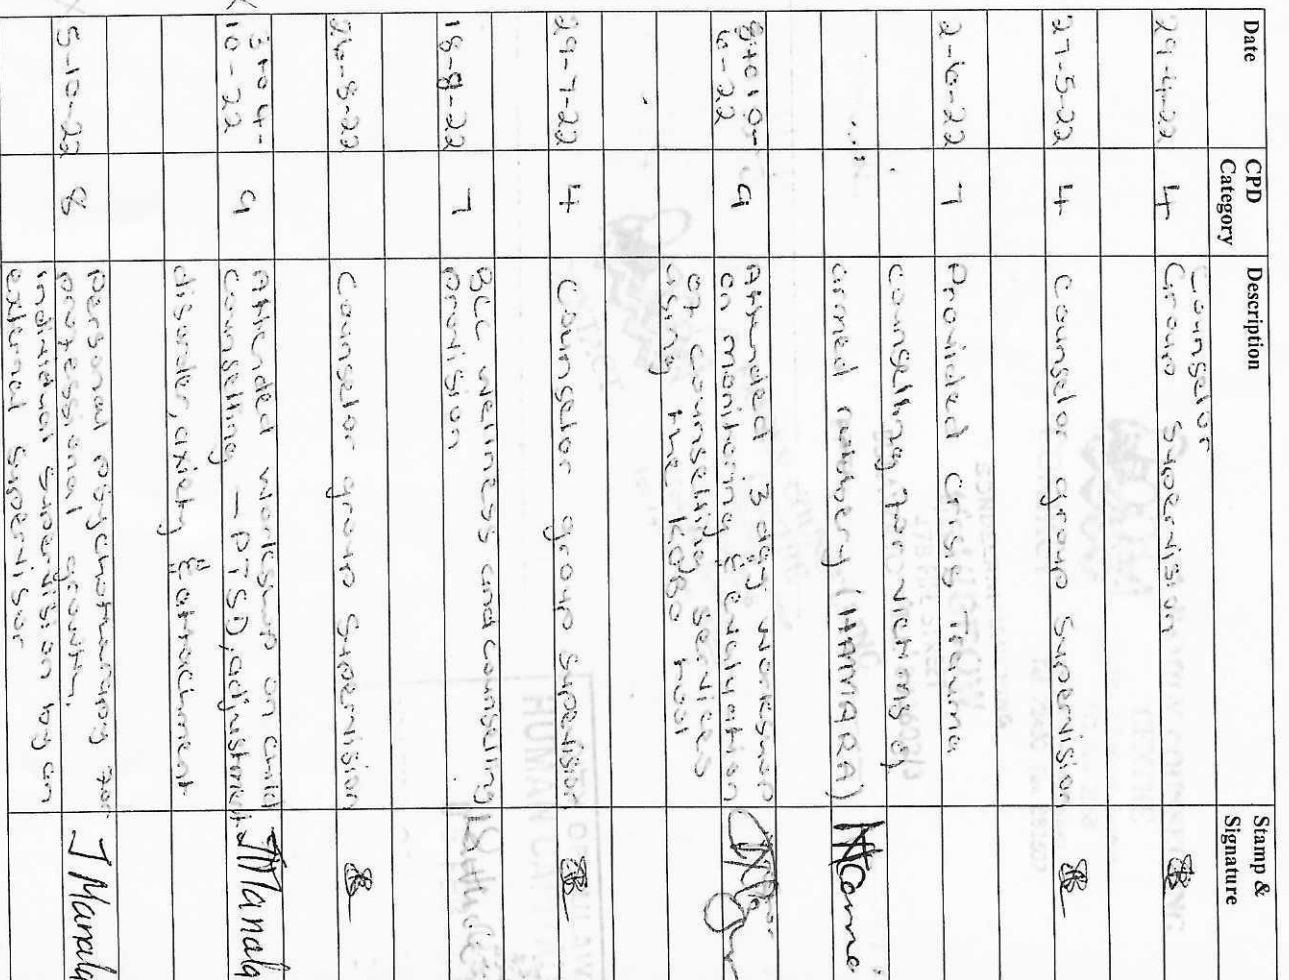 Date CPD Category Description Stamp & Signature
29-4-22 4 Counselor
Group Supervision
27-5-22 4 Counselor group Supervision
2-6-22 7 Provided Crisis Trauma
counselling for victims of
armed robbery (HAMARA)
8 to 10-
6-22 9 Attended 3 day workshop
on monitoring & evaluation
of counselling services
using the KOBO tool
29-7-22 4 Counselor group supervision
18-8-22 7 BCC wellness and counselling
provision
26-8-22 Counselor group Supervision
3 to 4-
10-22 9 Attended workshop on child
counselling - PTSD, adjustment
disorder, axiety & attachment
5-10-22 8 personal psychotherapy for
professional growth,
individual supervision by an
external supervisor
J Manala